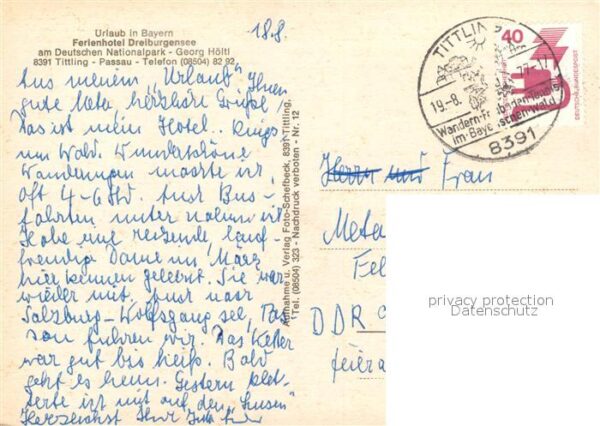 18.8.
Urlaub in Bayern
Ferienhotel Dreiburgensee
am Deutschen Nationalpark - Georg Höltl
8391 Tittling - Passau - Telefon (08504) 82 92
Aus meinem "Urlaub" Ihnen
gute Meta herzliche Grüße,
Das ist mein Hotel. Rings
um Wald. Wunderschöne
Wanderungen machte ich,
oft 4-6 Std. Auch Bus-
fahrten unter nahm ich
Habe eine reizende
Dame im März
hier kennen gelernt. Sie war
wieder mit, auch nach
Salzburg - Wolfgang see, Pas
sau fuhren wir. Das Wetter
war gut bis heiß. Bald
geht es heim. Gestern klet-
terte ich mit auf den "Lusen"
Herzlichst Ihre
Aufnahme u. Verlag Foto-Schefbeck, 8391 Tittling,
Tel. (08504) 323 - Nachdruck verboten - Nr. 12
TITTLING
19.-8. 77-17
Wandern-Freibaden-Tennis
im Bayerischen Wald
8391
40
DEUTSCHE BUNDESPOST
Herrn und Frau
Meta
DDR
privacy protection
Datenschutz